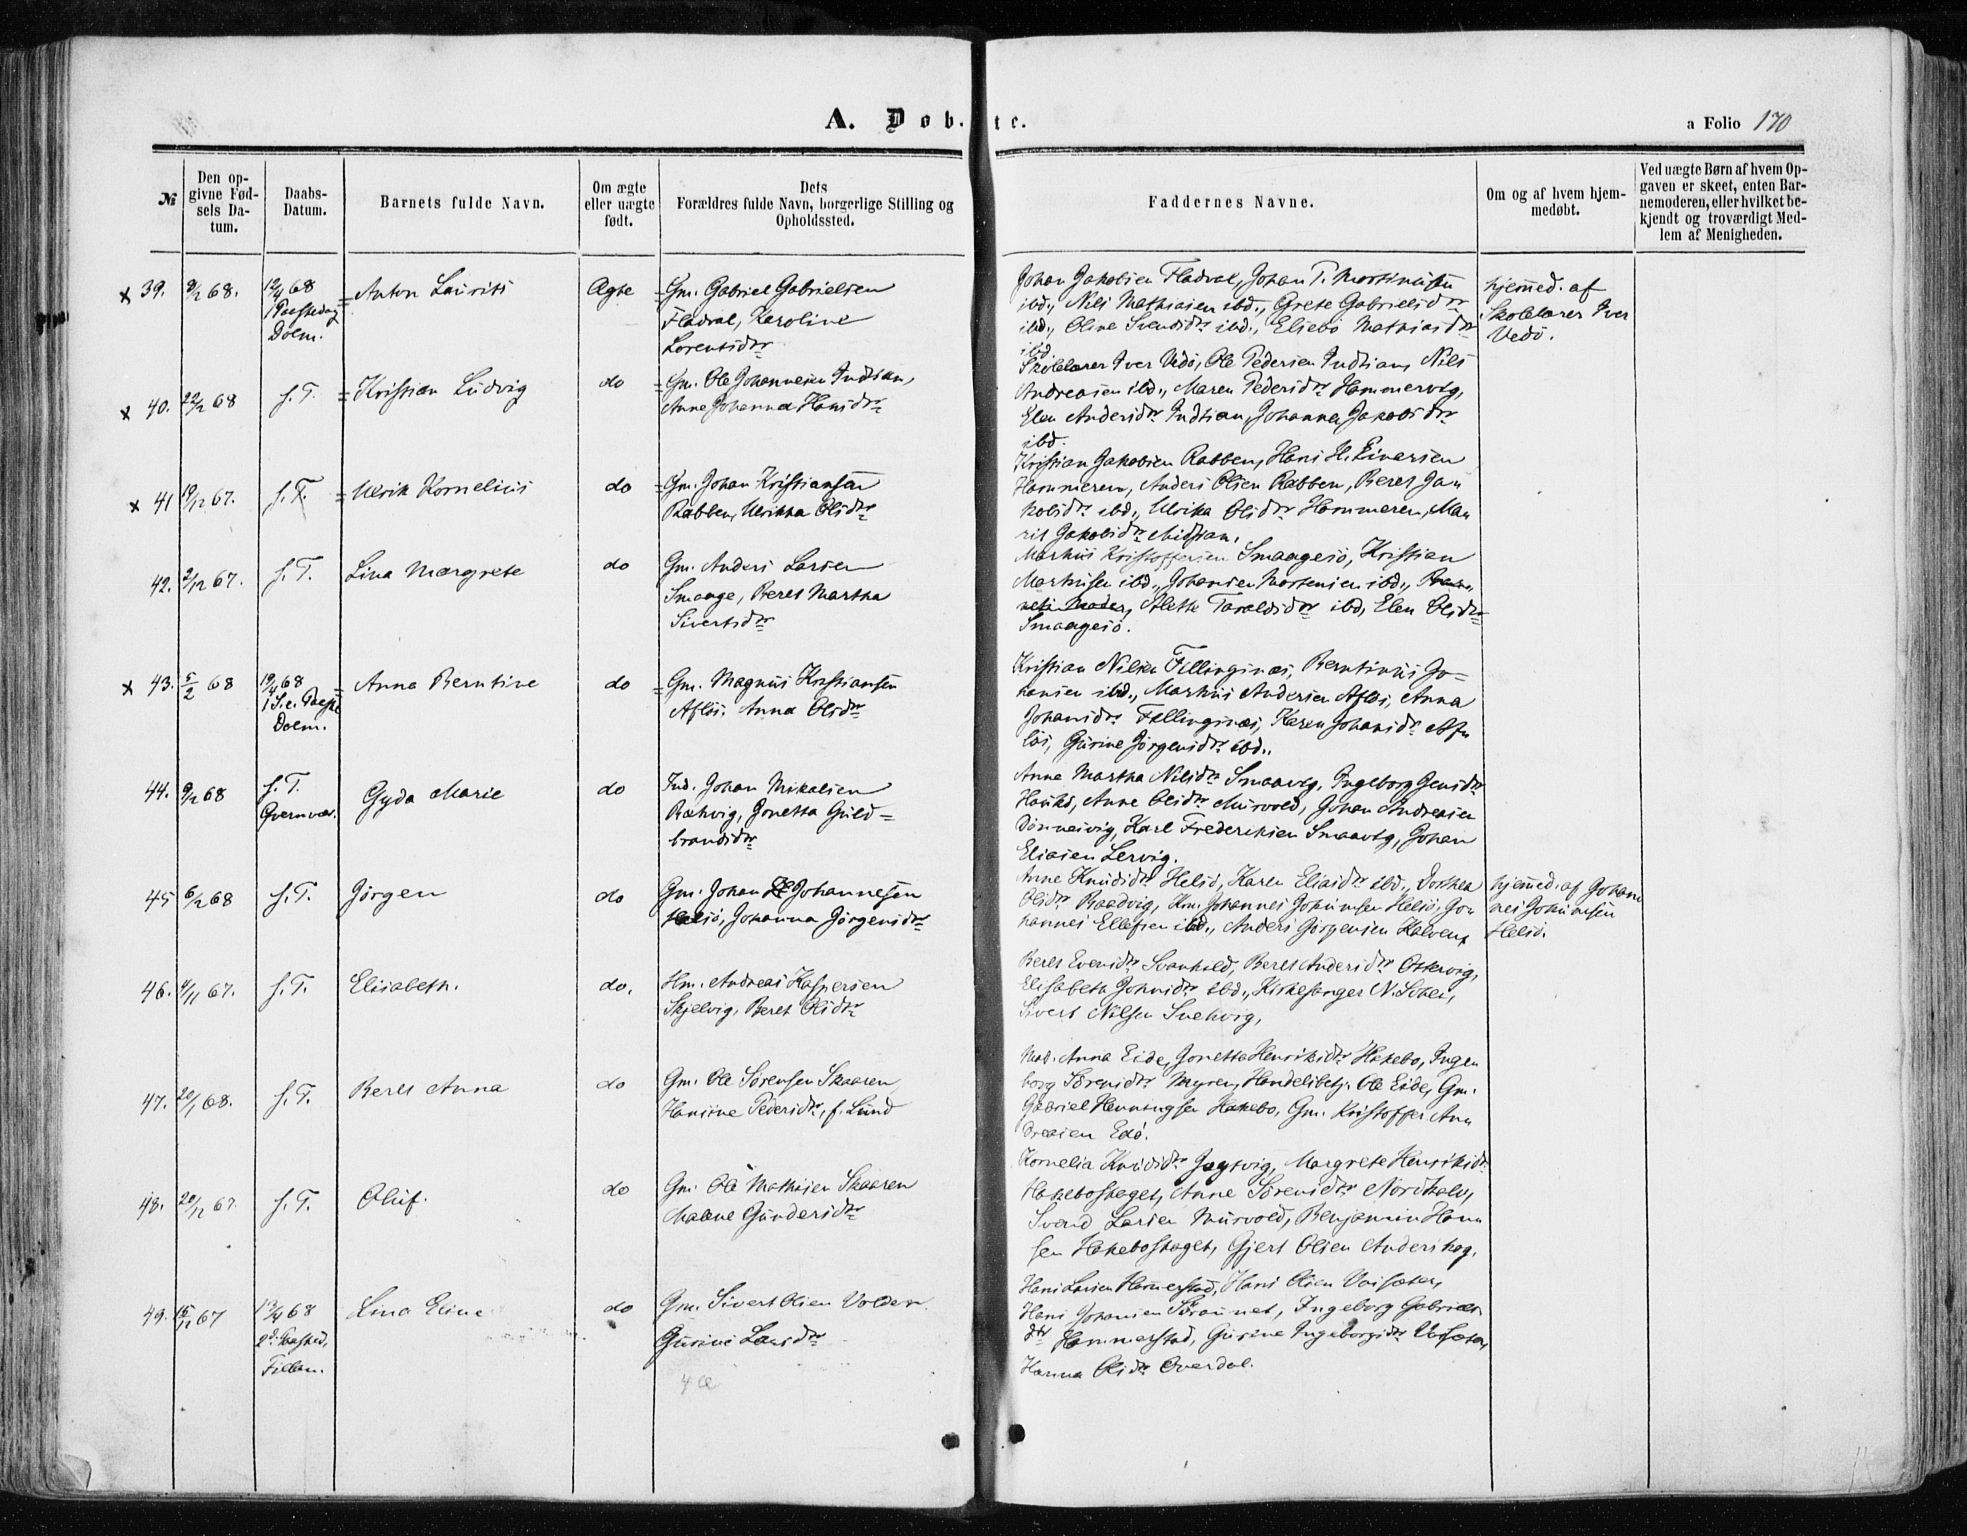 A. Døb- te.
a Folio 170
№
Den op-
givne Fød-
sels Da-
tum.
Daabs-
Datum.
Barnets fulde Navn.
Om ægte
eller uægte
født.
Dets
Forældres fulde Navn, borgerlige Stilling og
Opholdssted.
Faddernes Navne.
Om og af hvem hjem-
medøbt.
Ved uægte Børn af hvem Op-
gaven er skeet, enten Bar-
nemoderen, eller hvilket be-
kjendt og troværdigt Med-
lem af Menigheden.
x 39. 9/2 68. 12/4 68
1 Paaskedag
Dolm.
= Anton Laurits
Ægte
= Gm. Gabriel Gabrielsen
Fladval, Karoline
Lorentsdtr
Johan Jakobsen Fladval, Johan T. Mortinusen
ibd., Nils Mathiasen ibd., Grete Gabrielsdtr
ibd., Oline Svendsdtr ibd., Elisebø Mathiasdtr
ibd.
hjemmed. af
Skolelærer Iver
Vedø.
x 40. 22/2 68 s. T. = Kristian Ludvig
do
= Gm. Ole Johannesen Undsian,
Anne Johanna Hansdtr
Skolelærer Iver Vedø, Ole Pedersen Undsian, Nils
Andreasen ibd., Maren Pedersdtr Hammervig,
Elen Andersdtr Undsian, Johanna Jakobsdtr
ibd.
x 41 19/12 67. s. T. = Ulrik Kornelius
do
= Gm. Johan Kristiansen
Rabben, Ulrikka Olsdtr
Kristian Jakobsen Rabben, Hans H. Einersen
Hammeren, Anders Olsen Rabben, Beret Ja-
kobsdtr ibd., Ulrika Olsdtr Hammeren, Ma-
rit Jakobsdtr Midsian.
42. 2/12 67. s. T. Lina Margrete
do
Gm. Anders Larsen
Smaage, Beret Martha
Sivertsdtr
Markus Kristoffersen Smaagesø, Kristian
Markusen ibd., Johansen Mortensen ibd., Bar-
nets Moder, Alette Taraldsdtr ibd, Elen Olsdtr
Smaagesø.
x 43. 5/2 68 19/4 68
1 S. e. Paaske
Dolm.
= Anna Berntine
do
= Gm. Magnus Kristiansen
Afløs. Anna Olsdtr
Kristian Nilsen Fillingsnæs, Berntinus Jo-
hansen ibd., Markus Andersen Afløs, Anna
Johansdtr Fillingsnæs, Karen Johansdtr Af-
løs, Gurine Jørgensdtr ibd..
44. 9/2 68 s. T.
Qvernvær.
Gyda Marie
do
Ind. Johan Mikalsen
Rækvig, Jonetta Guld-
brandsdtr
Anne Martha Nilsdtr Smaavig, Ingeborg Jensdtr
Haukø, Anne Olsdtr Musvold, Johan Andreasen
Dønnesvig, Karl Frederiksen Smaavig, Johan
Eliasen Lervig.
45 6/2 68 s. T. Jørgen
do
Gm. Johan Johannesen
Helsø, Johanna Jørgensdtr
Anne Knudsdtr Helsø, Karen Eliasdtr ibd., Dorthea
Olsdtr Baadvig, Hm. Johannes Johansen Helsø, Jo-
hannes Ellefsen ibd., Anders Jørgensen Kalven,
hjemmed. af Johan-
nes Johansen
Helsø.
46. 4/11 67. s. T. Elisabeth.
do.
Hm. Andreas Kaspersen
Skjelvig, Beret Olsdtr
Beret Evensdtr Svankild, Beret Andersdtr Ottervig,
Elisabeth Johnsdtr ibd., Kirkesanger N. Selnes,
Sivert Nilsen Snekvig,
47. 20/1 68. s. T. Beret Anna
do
Gm. Ole Sørensen Skaaren
Hansine Pedersdtr, f. Lund
Mad. Anna Eide, Jonetta Henriksdtr Hakebo, Inge-
borg Sørensdtr Myren, Handelsbetj. Ole Eide, Gm.
Gabriel Henningsen Hakebo, Gm. Kristoffer An-
dreasen Edø.
48. 20/12 67. s. T. Oluf.
do
Gm. Ole Mathisen Skaaren
Malene Gundersdtr
Kornelia Knudsdtr Jøgtvig, Margrete Henriksdtr
Hakeboskaget, Anne Sørensdtr Nordkalv,
Svend Larsen Musvold, Benjamin Han-
sen Hakeboskaget, Gjert Olsen Anderskog,
49. 15/12 67 13/4 68
2d. Paasked,
Fillan.
Lina Eline
do
Gm. Sivert Olsen Volden
Gurine Larsdtr
Hans Larsen Hammerstad, Hans Olsen Vaisæter,
Hans Johansen Straumet, Ingeborg Gabriels-
dtr Hammerstad, Gurine Ingeborgsdtr Vaisæter,
Hanna Olsdtr Overdal.